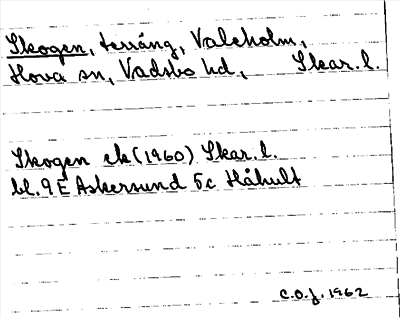 Skogen, terräng, Valeholm,
Hova sn, Vadsbo hd, Skar. l.
Skogen ek (1960) Skar. l.
bl. 9 E Askersund 5c Håhult
C.O.J. 1962